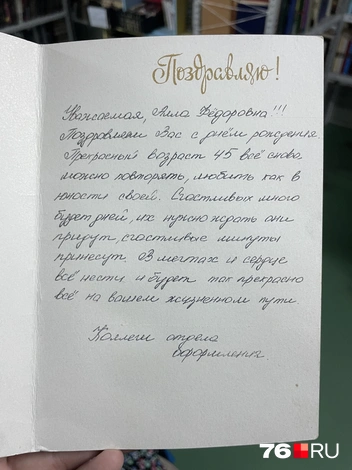 Поздравляю!
Уважаемая, Алла Фёдоровна!!!
Поздравляем Вас с днём рождения
Прекрасный возраст 45 всё снова
можно повторять, любить как в
юности своей. Счастливых много
будет дней, их нужно ждать они
придут, счастливые минуты
принесут. В мечтах и сердце
всё нести и будет так прекрасно
всё на вашем жизненном пути.
Коллеги отдела
оформления.
76.RU